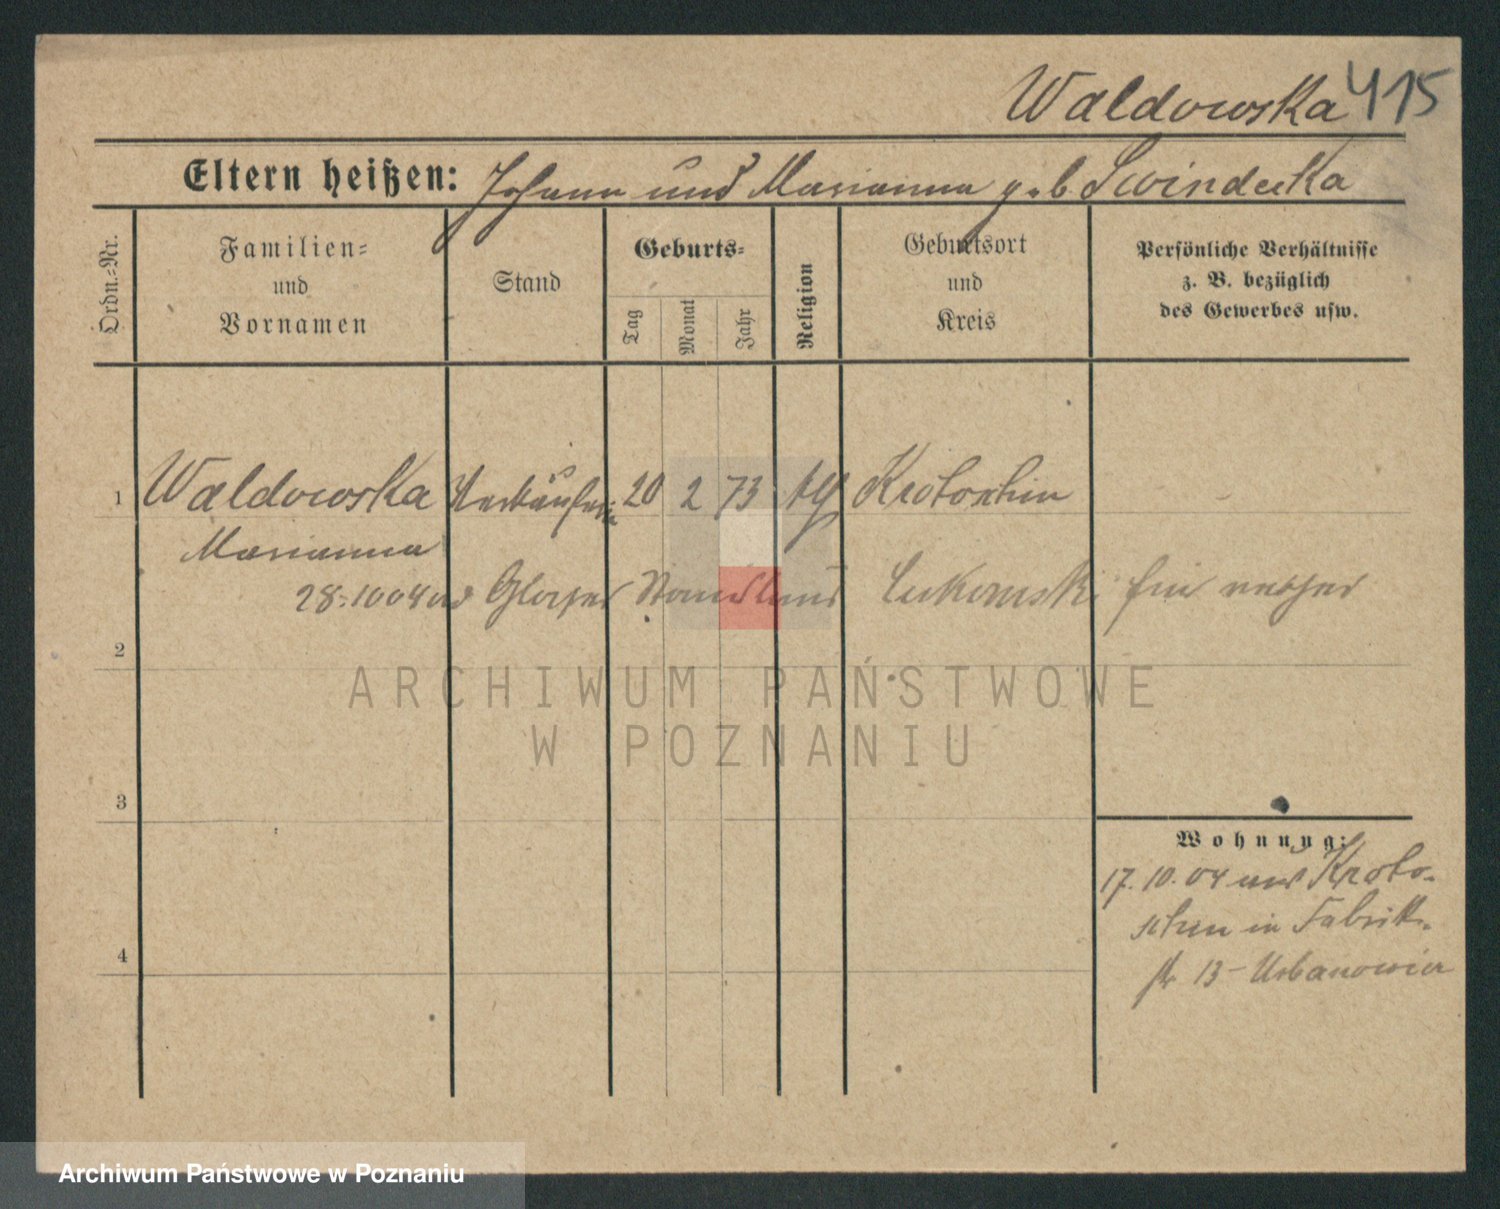 Waldowska 415
Eltern heißen: Johann und Marianna geb. Swinderka
Ordn.=Nr.
Familien=
und
Vornamen
Stand
Geburts=
Tag
Monat
Jahr
Religion
Geburtsort
und
Kreis
Persönliche Verhältnisse
z. B. bezüglich
des Gewerbes usw.
1 Waldowska Verkäuferin 20 2 73 kath Krotoschin
Marianna
28.10 04 Glaser Lukowski
2
3
4
Wohnung:
17. 10. 04 aus Kroto-
schin in Fabrik-
str 13 - Urbanowicz
ARCHIWUM PAŃSTWOWE
W POZNANIU
Archiwum Państwowe w Poznaniu